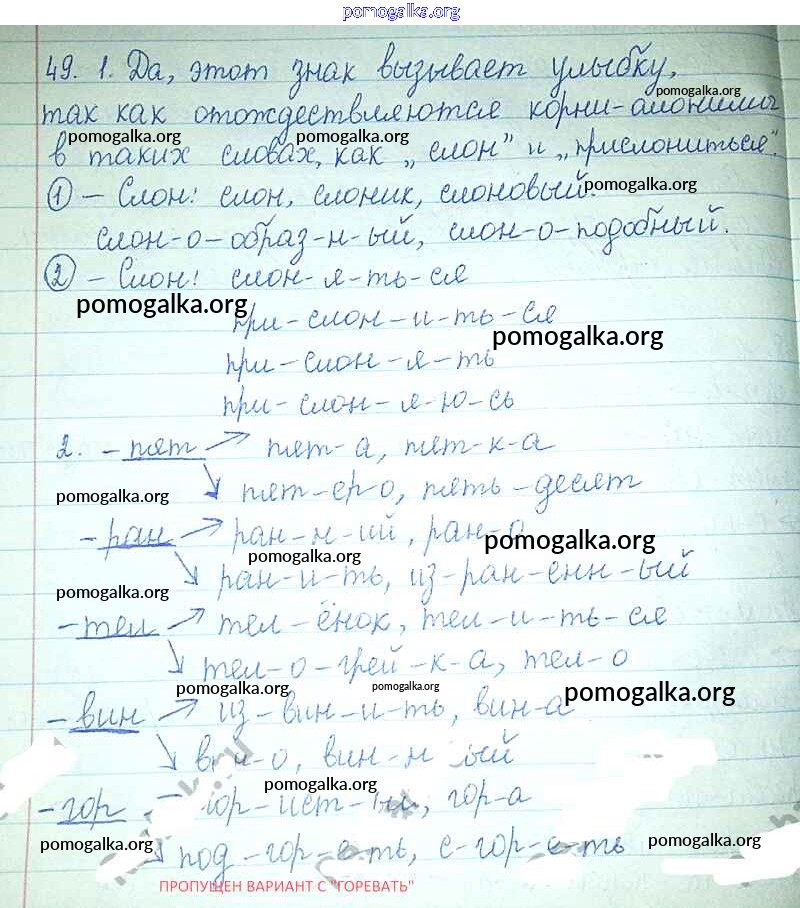 pomogalka.org
49. 1. Да, этот знак вызывает улыбку,
pomogalka.org
так как отождествляются корни-омонимы
pomogalka.org pomogalka.org
в таких словах, как „слон" и „прислониться".
pomogalka.org
① – Слон: слон, слоник, слоновый.
слон-о-образ-н-ый, слон-о-подобный.
② – Слон: слон-я-ть-ся
pomogalka.org
при-слон-и-ть-ся
pomogalka.org
при-слон-я-ть
при-слон-я-ю-сь
2. -пят → пят-а, пят-к-а
pomogalka.org
пят-ер-о, пять-десят
-ран → ран-н-ий, ран-о
pomogalka.org
pomogalka.org
ран-и-ть, из-ран-енн-ый
pomogalka.org
-тел → тел-ёнок, тел-и-ть-ся
тел-о-грей-к-а, тел-о
pomogalka.org pomogalka.org pomogalka.org
-вин → из-вин-и-ть, вин-а
в-о, вин-н ый
pomogalka.org
-гор гор-ист-ый, гор-а
pomogalka.org pomogalka.org
под-гор-е-ть, с-гор-е-ть
ПРОПУЩЕН ВАРИАНТ С "ГОРЕВАТЬ"